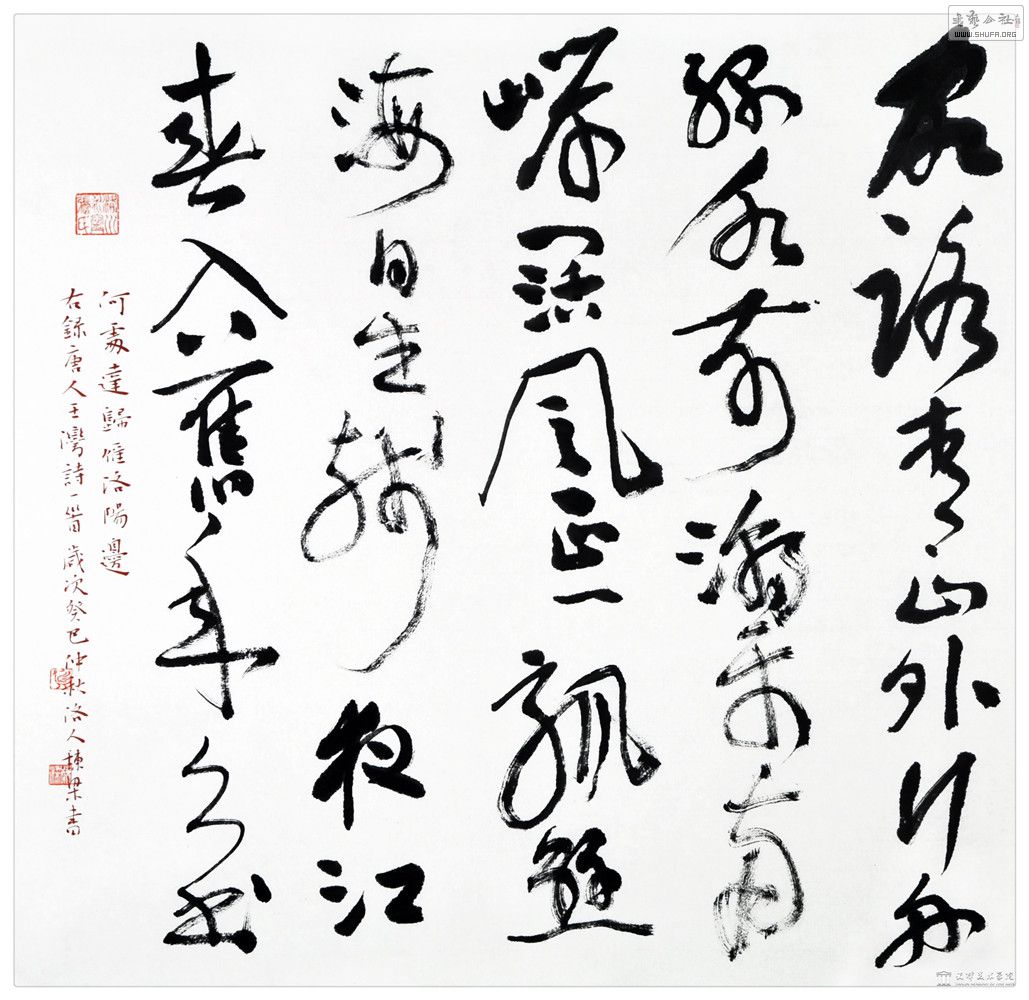 客路青山外行舟
綠水前潮平兩
岸闊風正一帆懸
海日生殘夜江
春入舊年鄉書
何處達歸雁洛陽邊
右錄唐人王灣詩一首歲次癸巳仲秋洛人棟梁書
書藝公社
WWW.SHUFA.ORG
天津美术学院